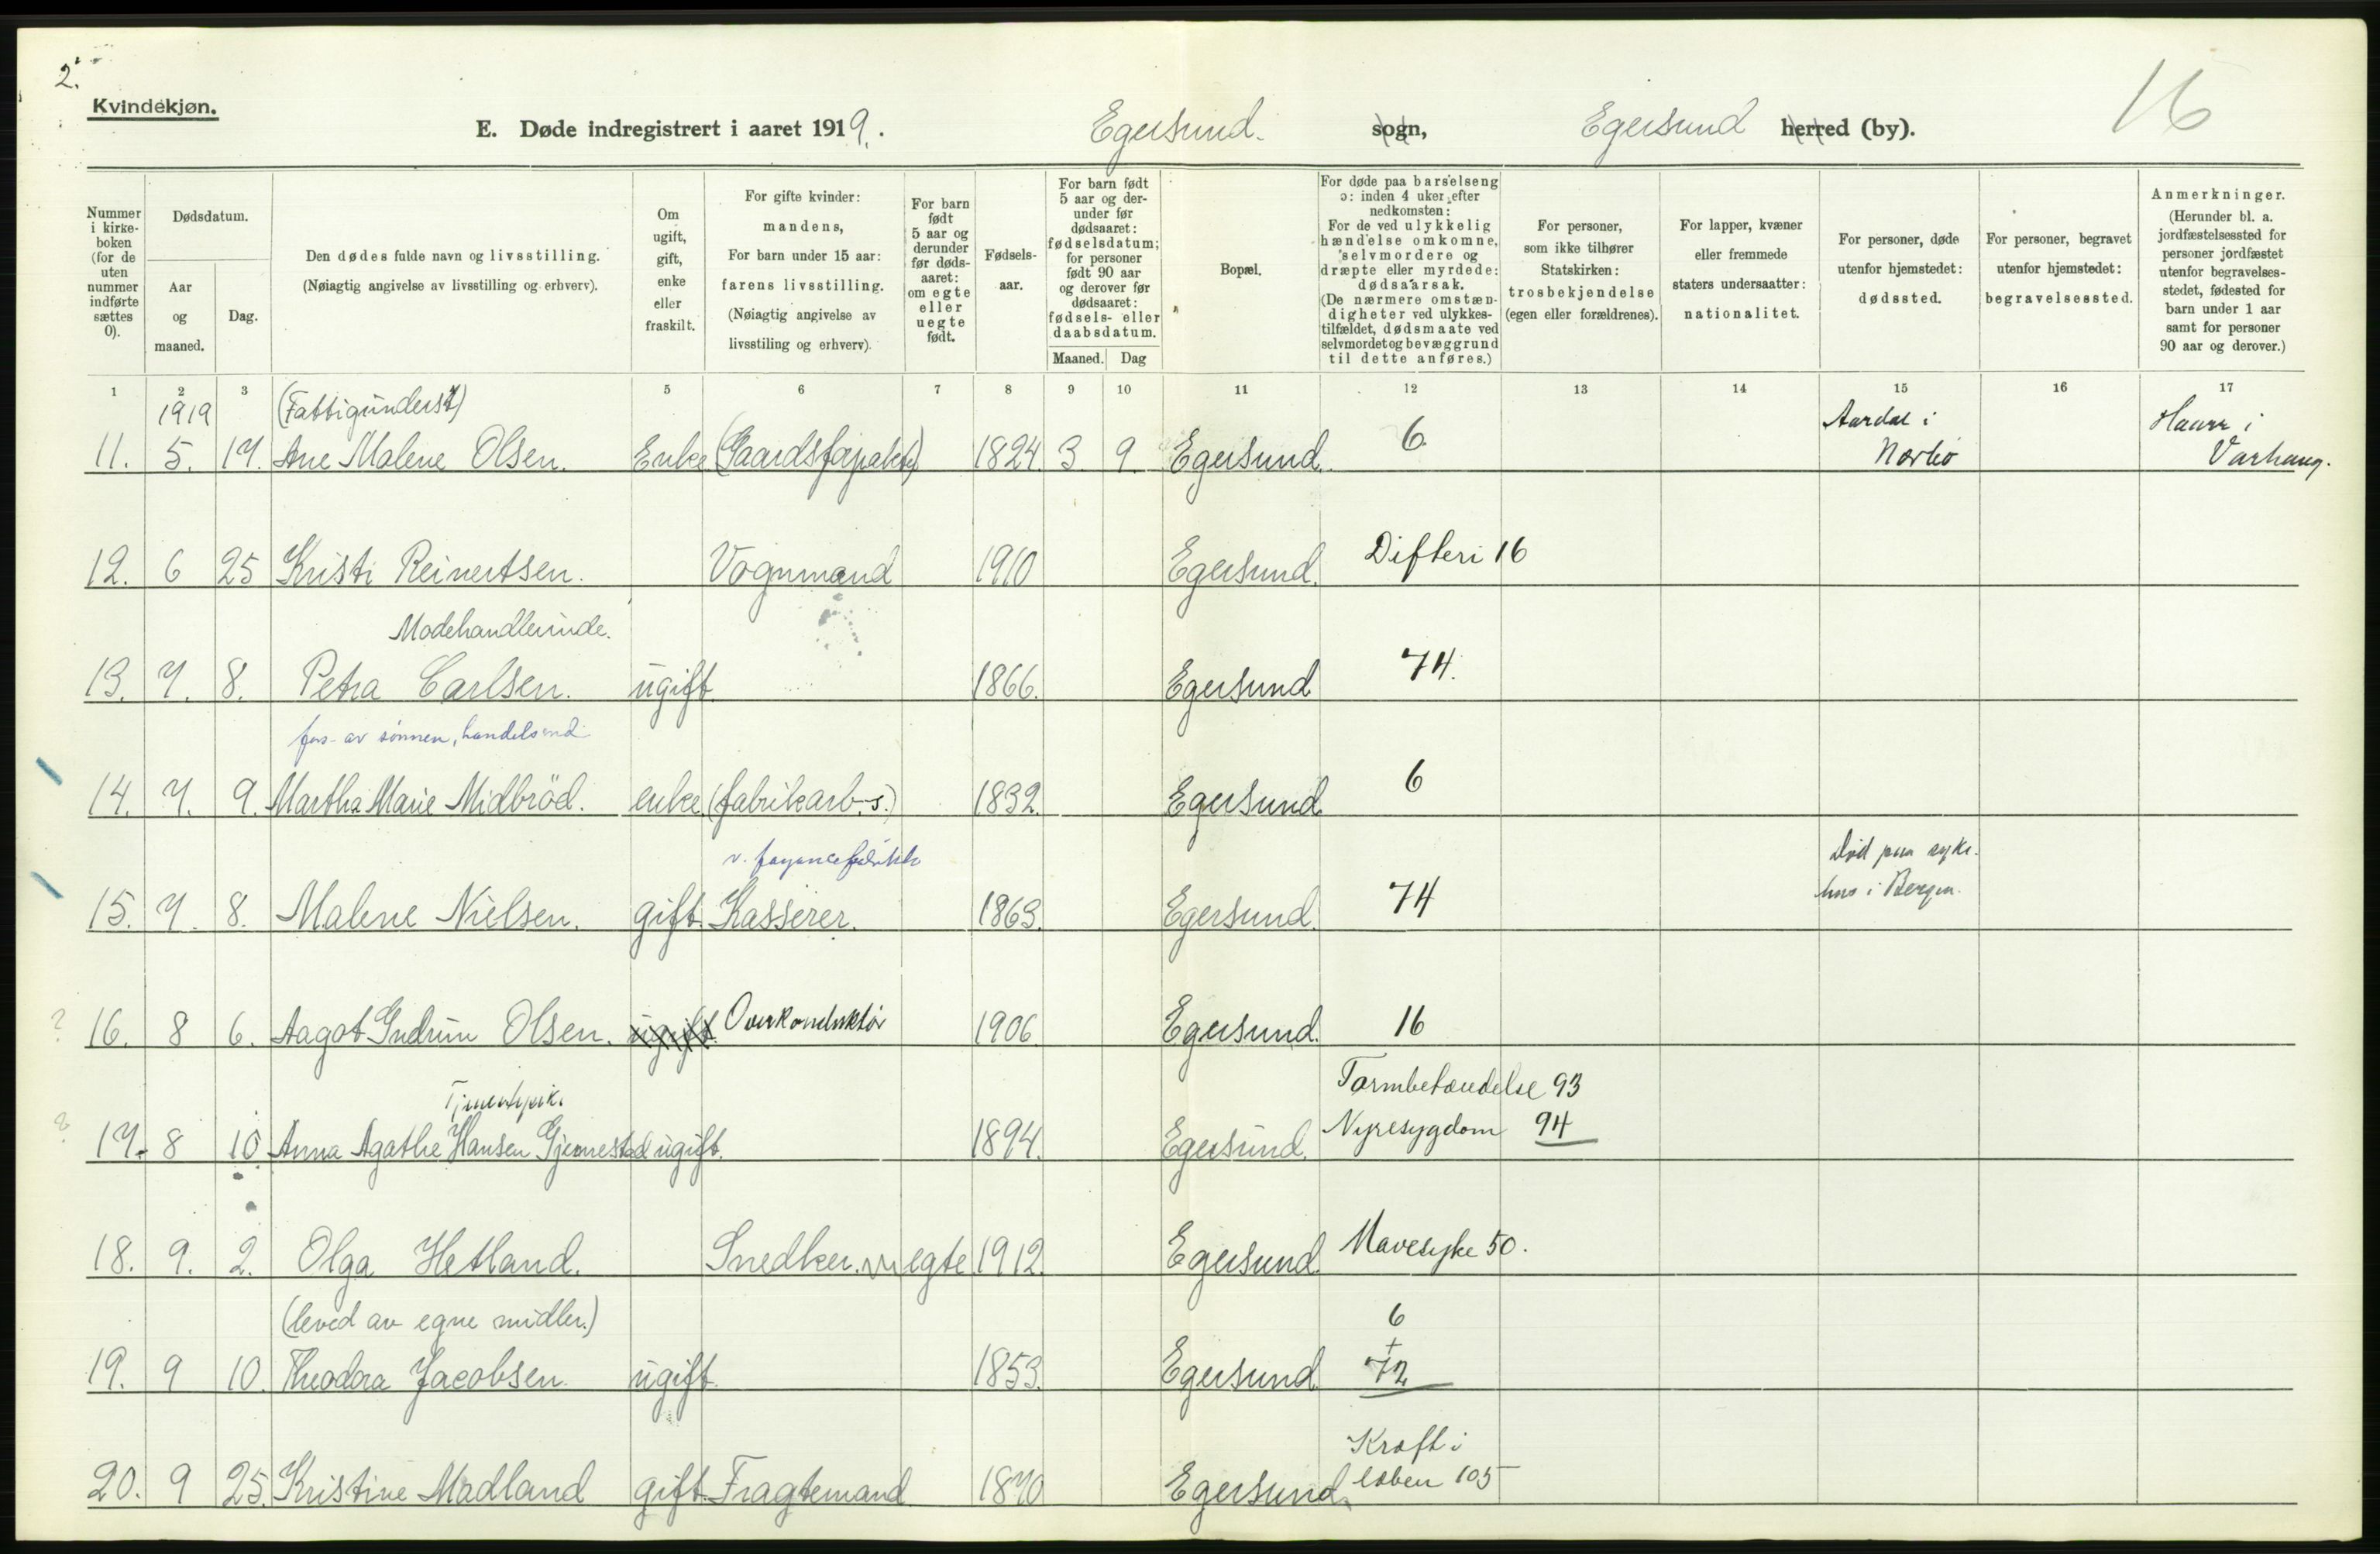 2.
Kvindekjøn.
E. Døde indregistrert i aaret 1919. Egersund. sogn, Egersund herred (by).
16
Nummer i kirke-boken (for de uten nummer indførte sættes 0).
Dødsdatum.
Aar og maaned.
Dag.
Den dødes fulde navn og livsstilling.
(Nøiagtig angivelse av livsstilling og erhverv).
Om ugift, gift, enke eller fraskilt.
For gifte kvinder: mandens, For barn under 15 aar: farens livsstilling. (Nøiagtig angivelse av livsstiling og erhverv).
For barn født 5 aar og derunder før døds-aaret: om egte eller uegte født.
Fødsels-aar.
For barn født 5 aar og der-under før dødsaaret: fødselsdatum; for personer født 90 aar og derover før dødsaaret: fødsels- eller daabsdatum.
Maaned. Dag
Bopæl.
For døde paa barselseng ɔ: inden 4 uker efter nedkomsten: For de ved ulykkelig hændelse omkomne, selvmordere og dræpte eller myrdede: dødsaarsak. (De nærmere omstæn-digheter ved ulykkes-tilfældet, dødsmaate ved selvmordet og bevæggrund til dette anføres.)
For personer, som ikke tilhører Statskirken: trosbekjendelse (egen eller forældrenes).
For lapper, kvæner eller fremmede staters undersaatter: nationalitet.
For personer, døde utenfor hjemstedet: dødssted.
For personer, begravet utenfor hjemstedet: begravelsessted.
Anmerkninger. (Herunder bl. a. jordfæstelsessted for personer jordfæstet utenfor begravelses-stedet, fødested for barn under 1 aar samt for personer 90 aar og derover.)
1 2 3 5 6 7 8 9 10 11 12 13 14 15 16 17
1919 (Fattigunderst) Aardal i Haarr i
11. 5. 17. Ane Malene Olsen. Enke 1824. 3. 9. Egersund. 6. Nærbø Varhaug.
12. 6 25 Kristi Reinertsen. Vognmand 1910 Egersund. Difteri 16
Modehandlerinde.
13. 7. 8. Petra Carlsen. ugift 1866. Egersund 74.
fors. av sønnen, handelsmd
14. 7. 9. Martha Marie Midbröd. enke (fabrikarb.s.) 1832. Egersund 6
v. fayancefabrikk Død paa syke-
15. 7. 8. Malene Nielsen. gift. Kasserer. 1863. Egersund. 74 hus i Bergen.
? 16. 8 6. Aagot Gudrun Olsen. ugift. Overkonduktør 1906 Egersund. 16
Tjenestepik. Tarmbetændelse 93
? 17. 8 10 Anna Agathe Hansen Gjermestad ugift. 1894. Egersund. Nyresygdom 94
18. 9. 2. Olga Hetland. Snedker. egte 1912. Egersund Mavesyke 50.
(leved av egne midler.) 6
+
19. 9 10. Theodora Jacobsen. ugift 1853. Egersund 72
Kræft i
20. 9 25. Kristine Madland gift. Fragtemand 1870 Egersund. 105